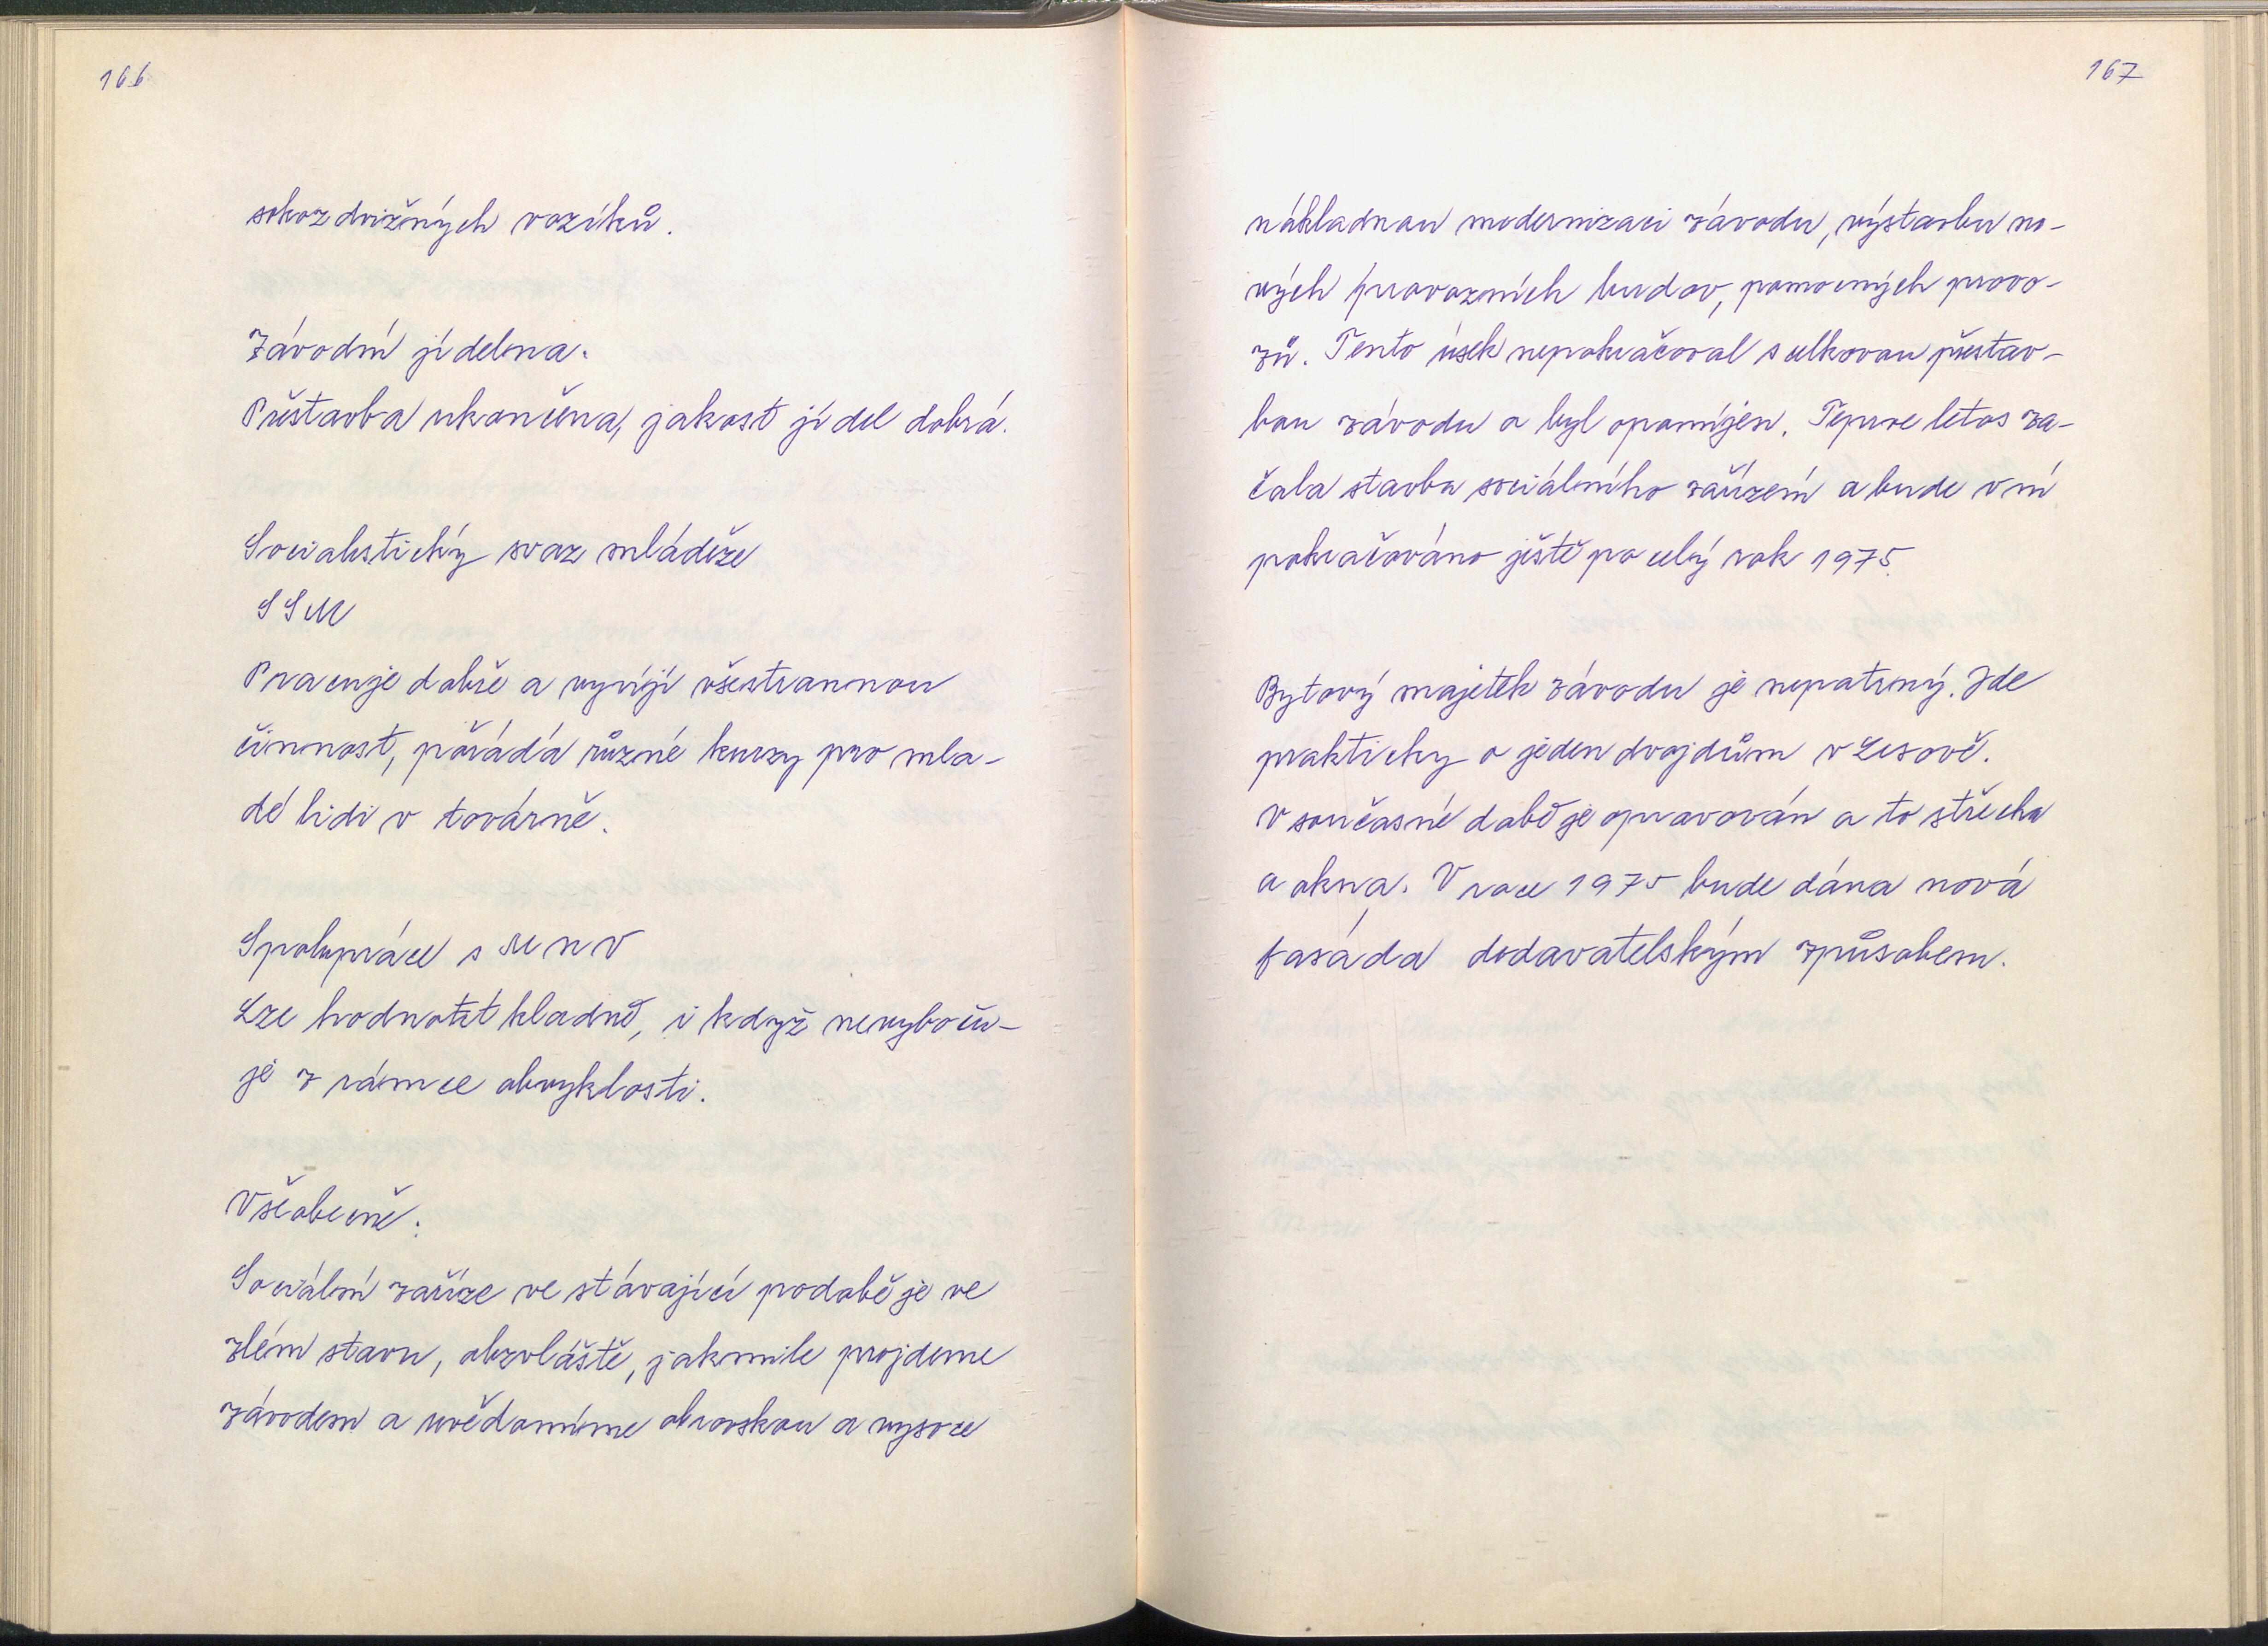 166
sokozdvižných vozíků.
Závodní jídelna.
Přestavba ukončena, jakost jídel dobrá.
Socialistický svaz mládeže
SSM
Pracuje dobře a vyvíjí všestrannou
činnost, pořádá různé kurzy pro mla-
dé lidi v továrně.
Spolupráce s MNV
Lze hodnotit kladně, i když nevyboču-
je z rámce obvyklosti.
Všeobecně:
Sociální zaříze ve stávající podobě je ve
zlém stavu, obzvláště, jakmile projdeme
závodem a uvědomíme obrovskou a vysoce
167
nákladnou modernizaci závodu, výstavbu no-
vých provozních budov, pomocných provo-
zů. Tento úsek nepokračoval s celkovou přestav-
bou závodu a byl opomíjen. Teprve letos za-
čala stavba sociálního zařízení a bude v ní
pokračováno ještě po celý rok 1975.
Bytový majetek závodu je nepatrný. Jde
prakticky o jeden dvojdům v Lesově.
V současné době je opravován a to střecha
a okna. V roce 1975 bude dána nová
fasáda dodavatelským způsobem.